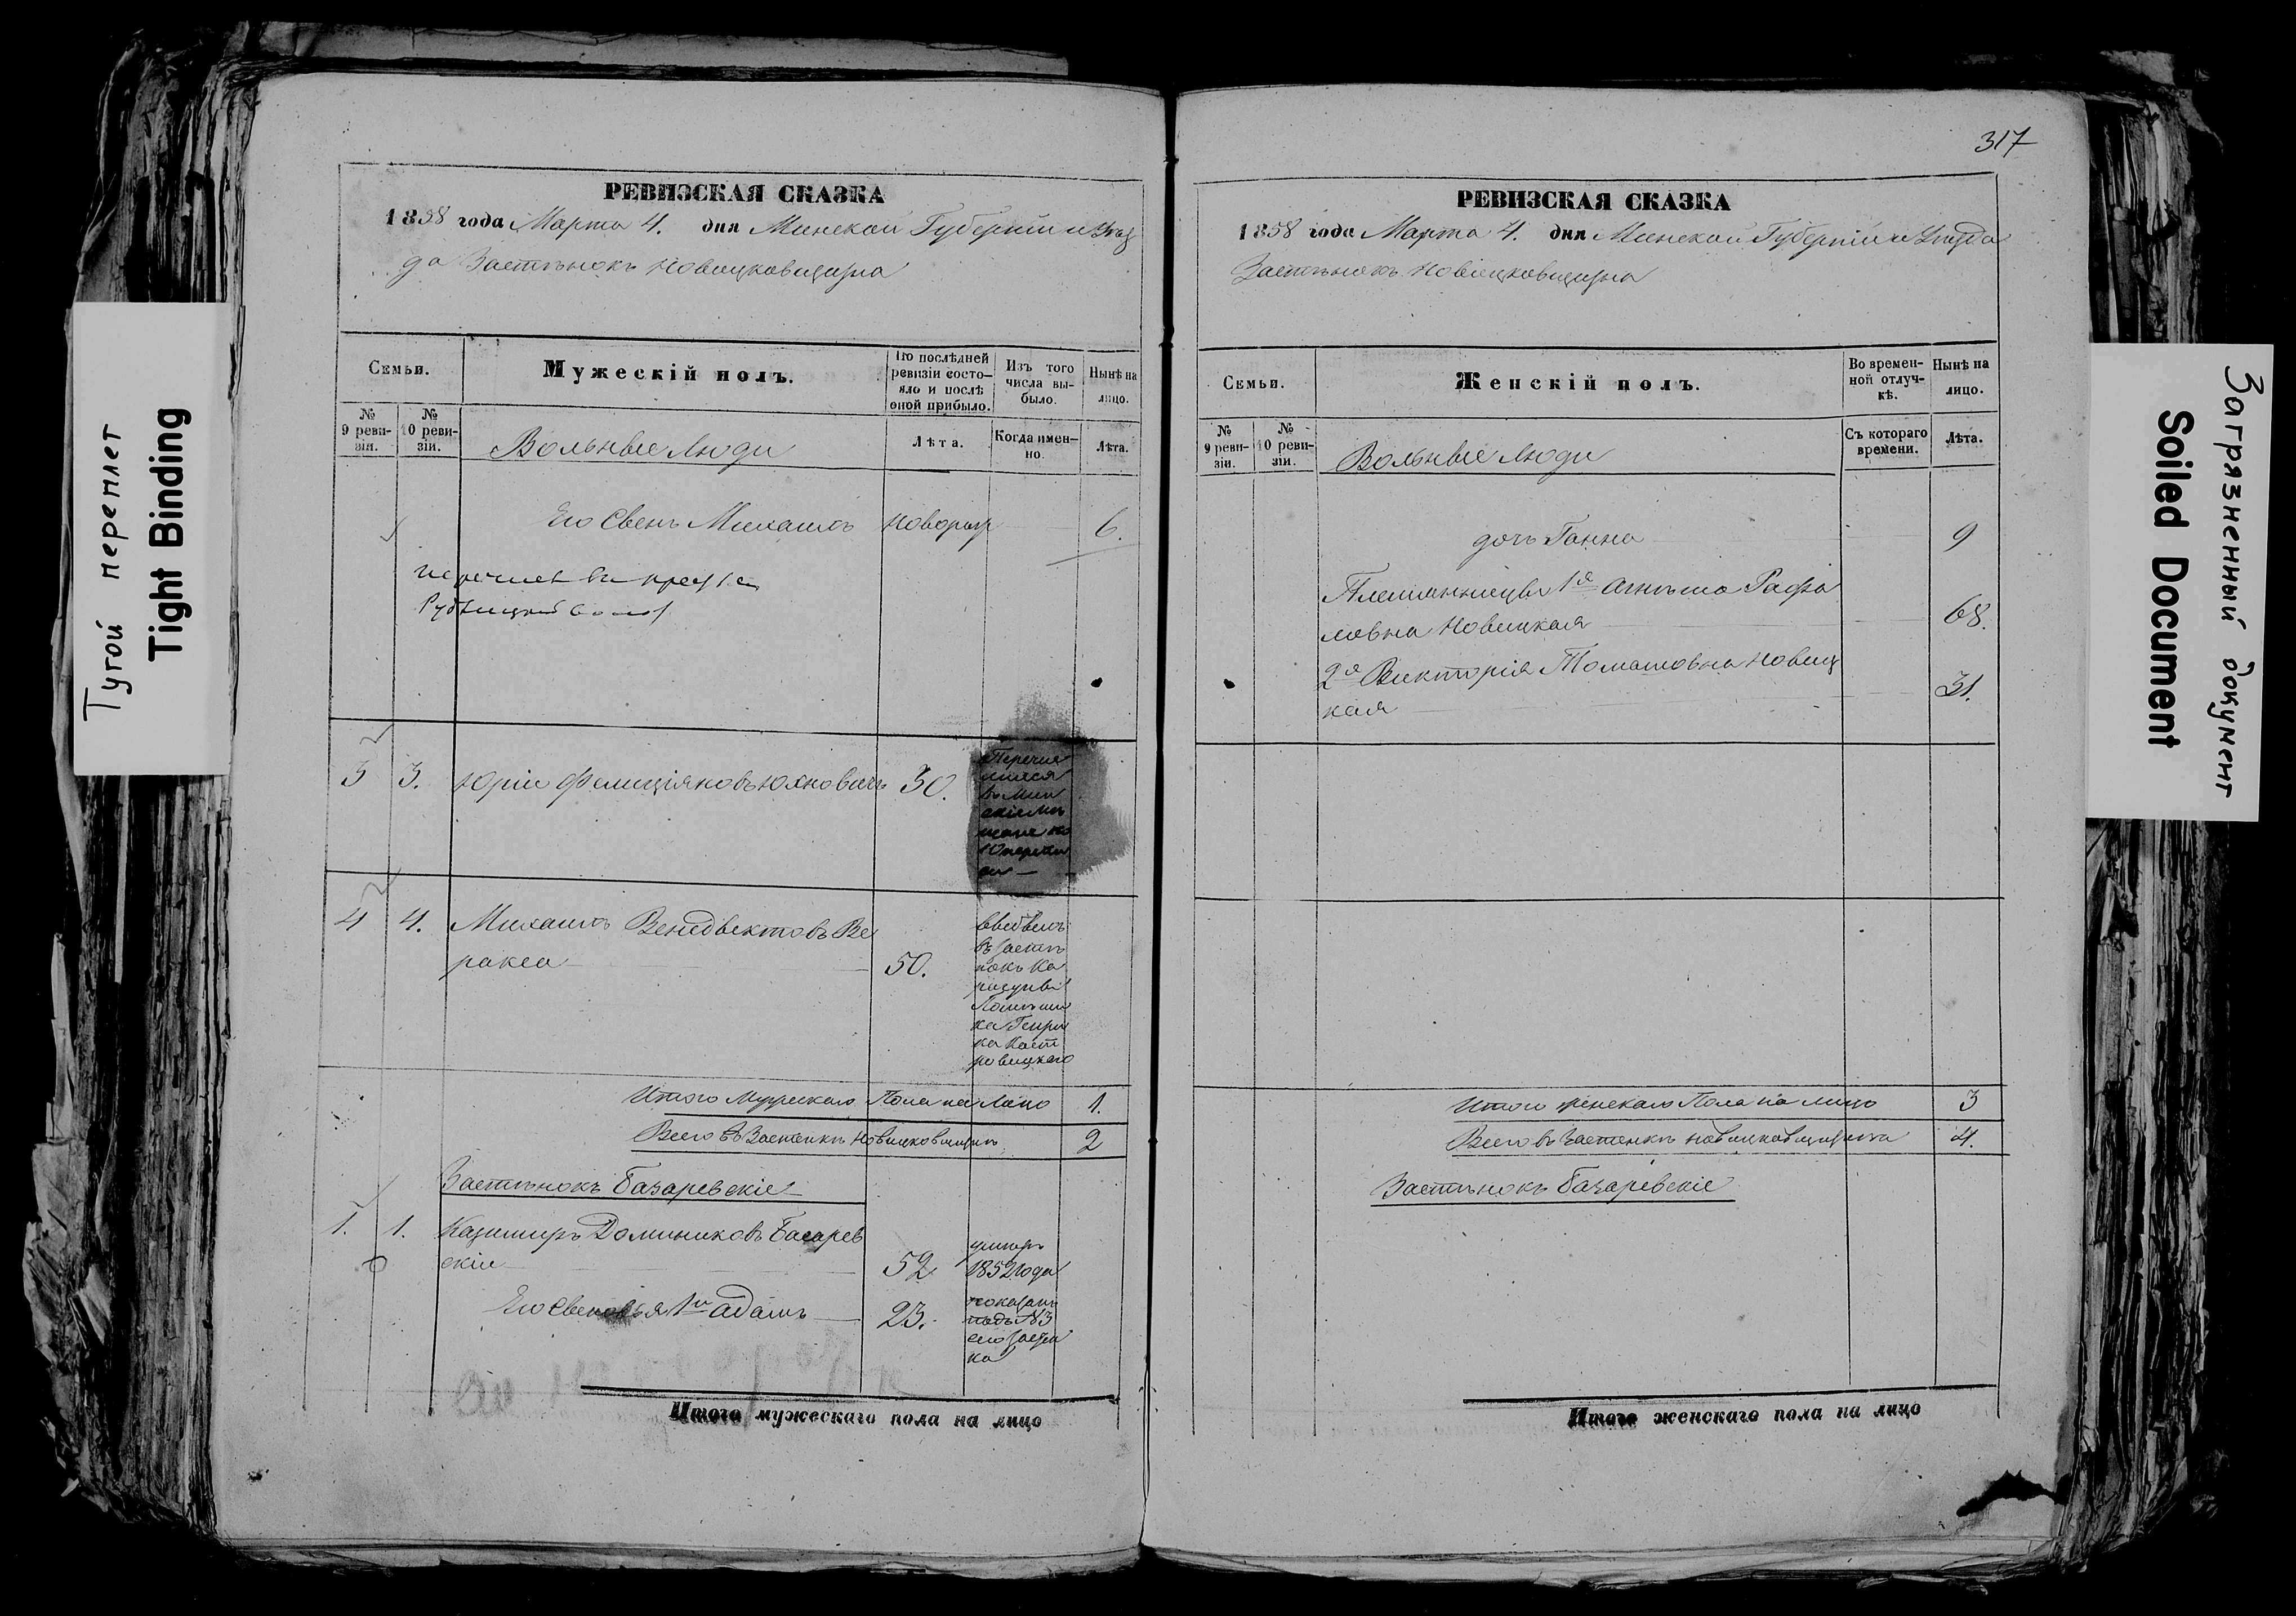 317
РЕВИЗСКАЯ СКАЗКА
1858 года Марта 4. дня Минской Губерніи и Уѣз
да Застѣнокъ Новицковщизна
Семьи.
Мужескій полъ.
По послѣдней ревизіи состо-
яло и послѣ оной прибыло.
Изъ того числа вы-
было.
Нынѣ на лицо.
№ 9 реви-
зіи.
№ 10 реви-
зіи.
Вольные Люди
Лѣта.
Когда имен-
но.
Лѣта.
Его Сынъ Михаилъ новорож 6.
3 3. Юрій Фелиціяновъ Юхновичъ 30.
Перечис
лился
въ Мин
скіе мѣ
щане по
10 переписи
4 4. Михаилъ Венедыктовъ Ве
ракса 50.
выбылъ
въ застѣ
нокъ Ка
Помѣщи
ка Генри
ка Каст
ровицкаго
Итого Мужескаго Пола на Лицо 1.
Всего въ Застенкѣ Новицковщизнѣ 2
Застѣнокъ Базаревскіе
1. 1. Казимиръ Доминиковъ Базарев
скій 52
умеръ
1852 года
Его Сыновья 1й Адамъ 23.
показанъ
подъ №3
его застѣн
ка
Итого мужескаго пола на лицо
РЕВИЗСКАЯ СКАЗКА
1858 года Марта 4. дня Минской Губерніи и Уѣзда
Застѣнокъ Новицковщизна
Семьи.
Женскій полъ.
Во времен-
ной отлуч-
кѣ.
Нынѣ на
лицо.
№ 9 реви-
зіи.
№ 10 реви-
зіи.
Вольные Люди
Съ котораго
времени.
Лѣта.
дочь Ганна 9
Племянницы 1я Агнѣта Рафа
ловна Новицкая 68.
2я Викторія Томашовна Новиц
кая 31.
Итого женскаго Пола на лицо 3
Всего въ Застенкѣ Новицковщизна 4.
Застѣнокъ Базаревскіе
Итого женскаго пола на лицо
Тугой переплет
Tight Binding
Загрязненный документ
Soiled Document